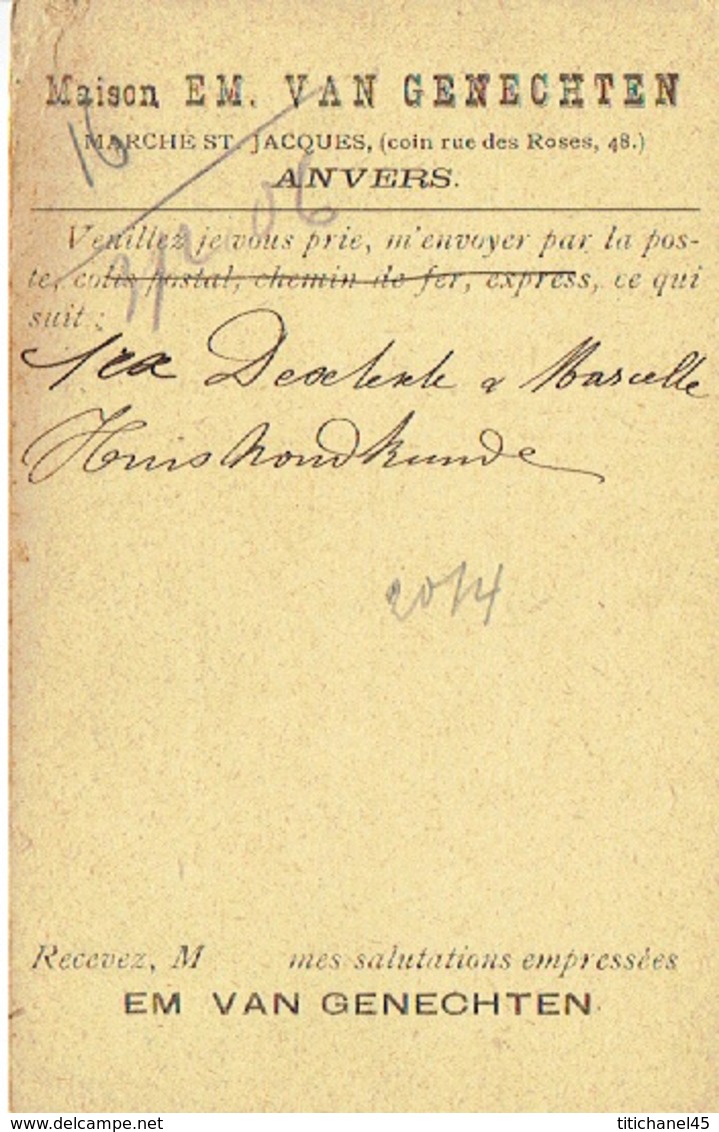 Maison EM. VAN GENECHTEN
MARCHÉ ST. JACQUES, (coin rue des Roses, 48.)
ANVERS.
16
06
Veuillez je vous prie, m'envoyer par la pos-
te, colis postal, chemin de fer, express, ce qui
suit :
1 ex & Marcelle
Huishoudkunde
2014
Recevez, M mes salutations empressées
EM VAN GENECHTEN
delcampe.net
titichanel45